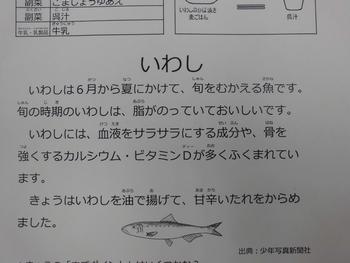 副菜 ごましょうゆあえ
副菜 呉汁
牛乳・乳製品 牛乳
麦ごはん
呉汁
いわし
いわしは6月から夏にかけて、旬をむかえる魚です。
旬の時期のいわしは、脂がのっていておいしいです。
いわしには、血液をサラサラにする成分や、骨を
強くするカルシウム・ビタミンDが多くふくまれてい
ます。
きょうはいわしを油で揚げて、甘辛いたれをからめ
ました。
出典:少年写真新聞社